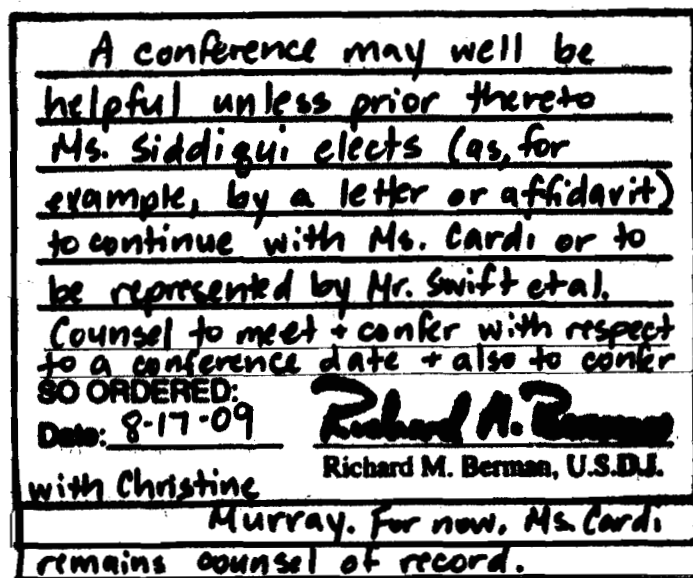 A conference may well be
helpful unless prior thereto
Ms. Siddiqui elects (as, for
example, by a letter or affidavit)
to continue with Ms. Cardi or to
be represented by Mr. Swift et al.
Counsel to meet + confer with respect
to a conference date + also to confer
SO ORDERED:
Date: 8-17-09
Richard M. Berman
Richard M. Berman, U.S.D.J.
with Christine
Murray. For now, Ms. Cardi
remains counsel of record.